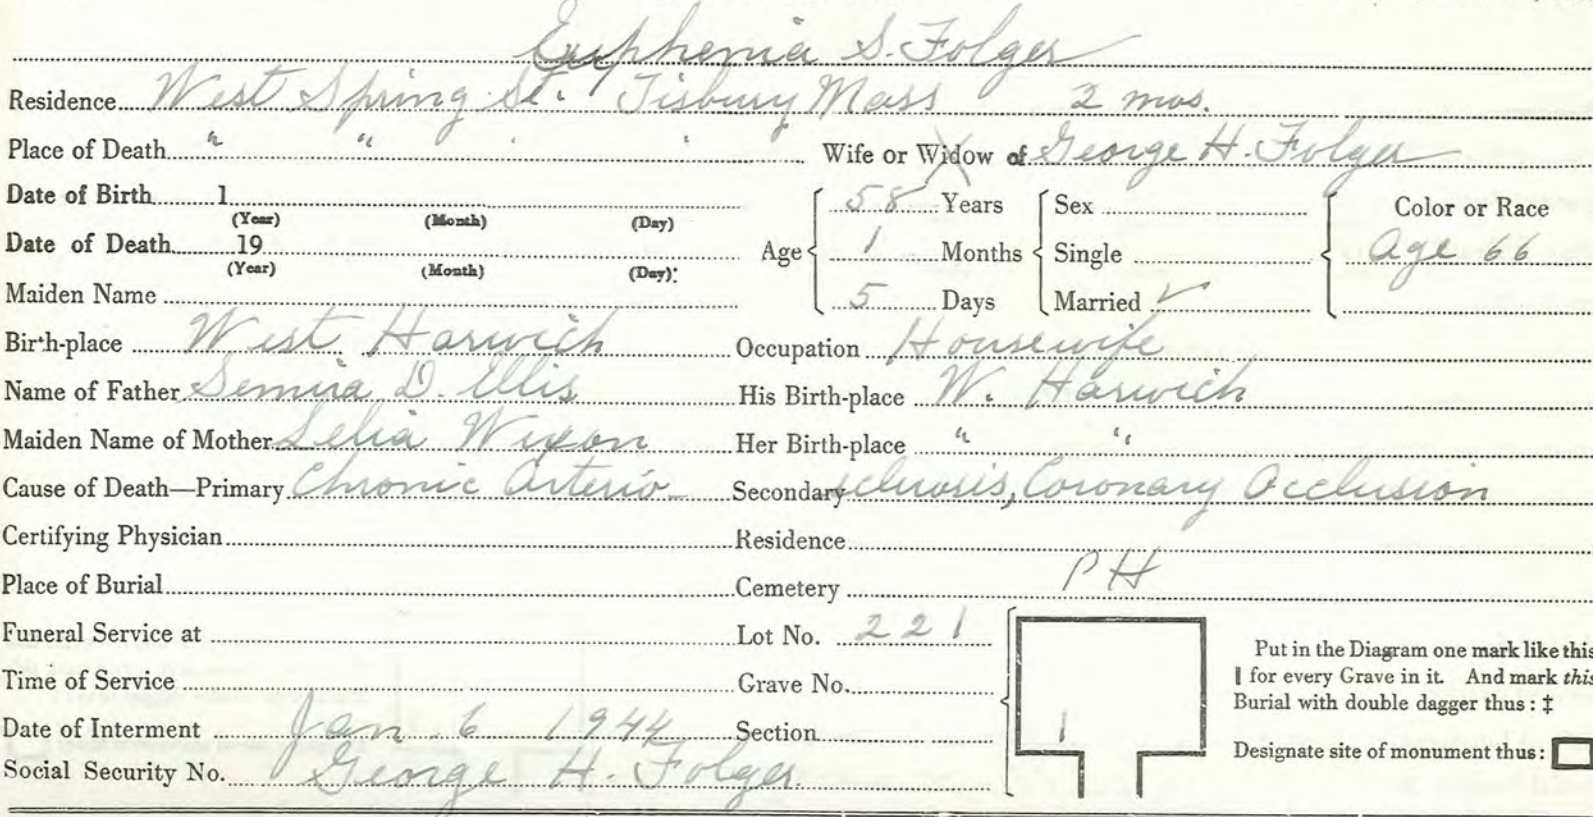 Euphemia S. Folger
Residence West Spring St. Tisbury Mass 2 mos.
Place of Death " " " " Wife or Widow of George H. Folger
Date of Birth 1 (Year) (Month) (Day)
Date of Death 19 (Year) (Month) (Day)
Age 58 Years 1 Months 5 Days
Sex
Single
Married ✓
Color or Race
Age 66
Maiden Name
Birth-place West Harwich Occupation Housewife
Name of Father D. Ellis His Birth-place W. Harwich
Maiden Name of Mother Lelia Wixon Her Birth-place " "
Cause of Death—Primary Chronic Arterio- Secondary sclerosis, Coronary Occlusion
Certifying Physician Residence
Place of Burial Cemetery PH
Funeral Service at Lot No. 221
Time of Service Grave No.
Date of Interment Jan. 6 1944 Section
Social Security No. George H. Folger.
Put in the Diagram one mark like this
| for every Grave in it. And mark this
Burial with double dagger thus: ‡
Designate site of monument thus: